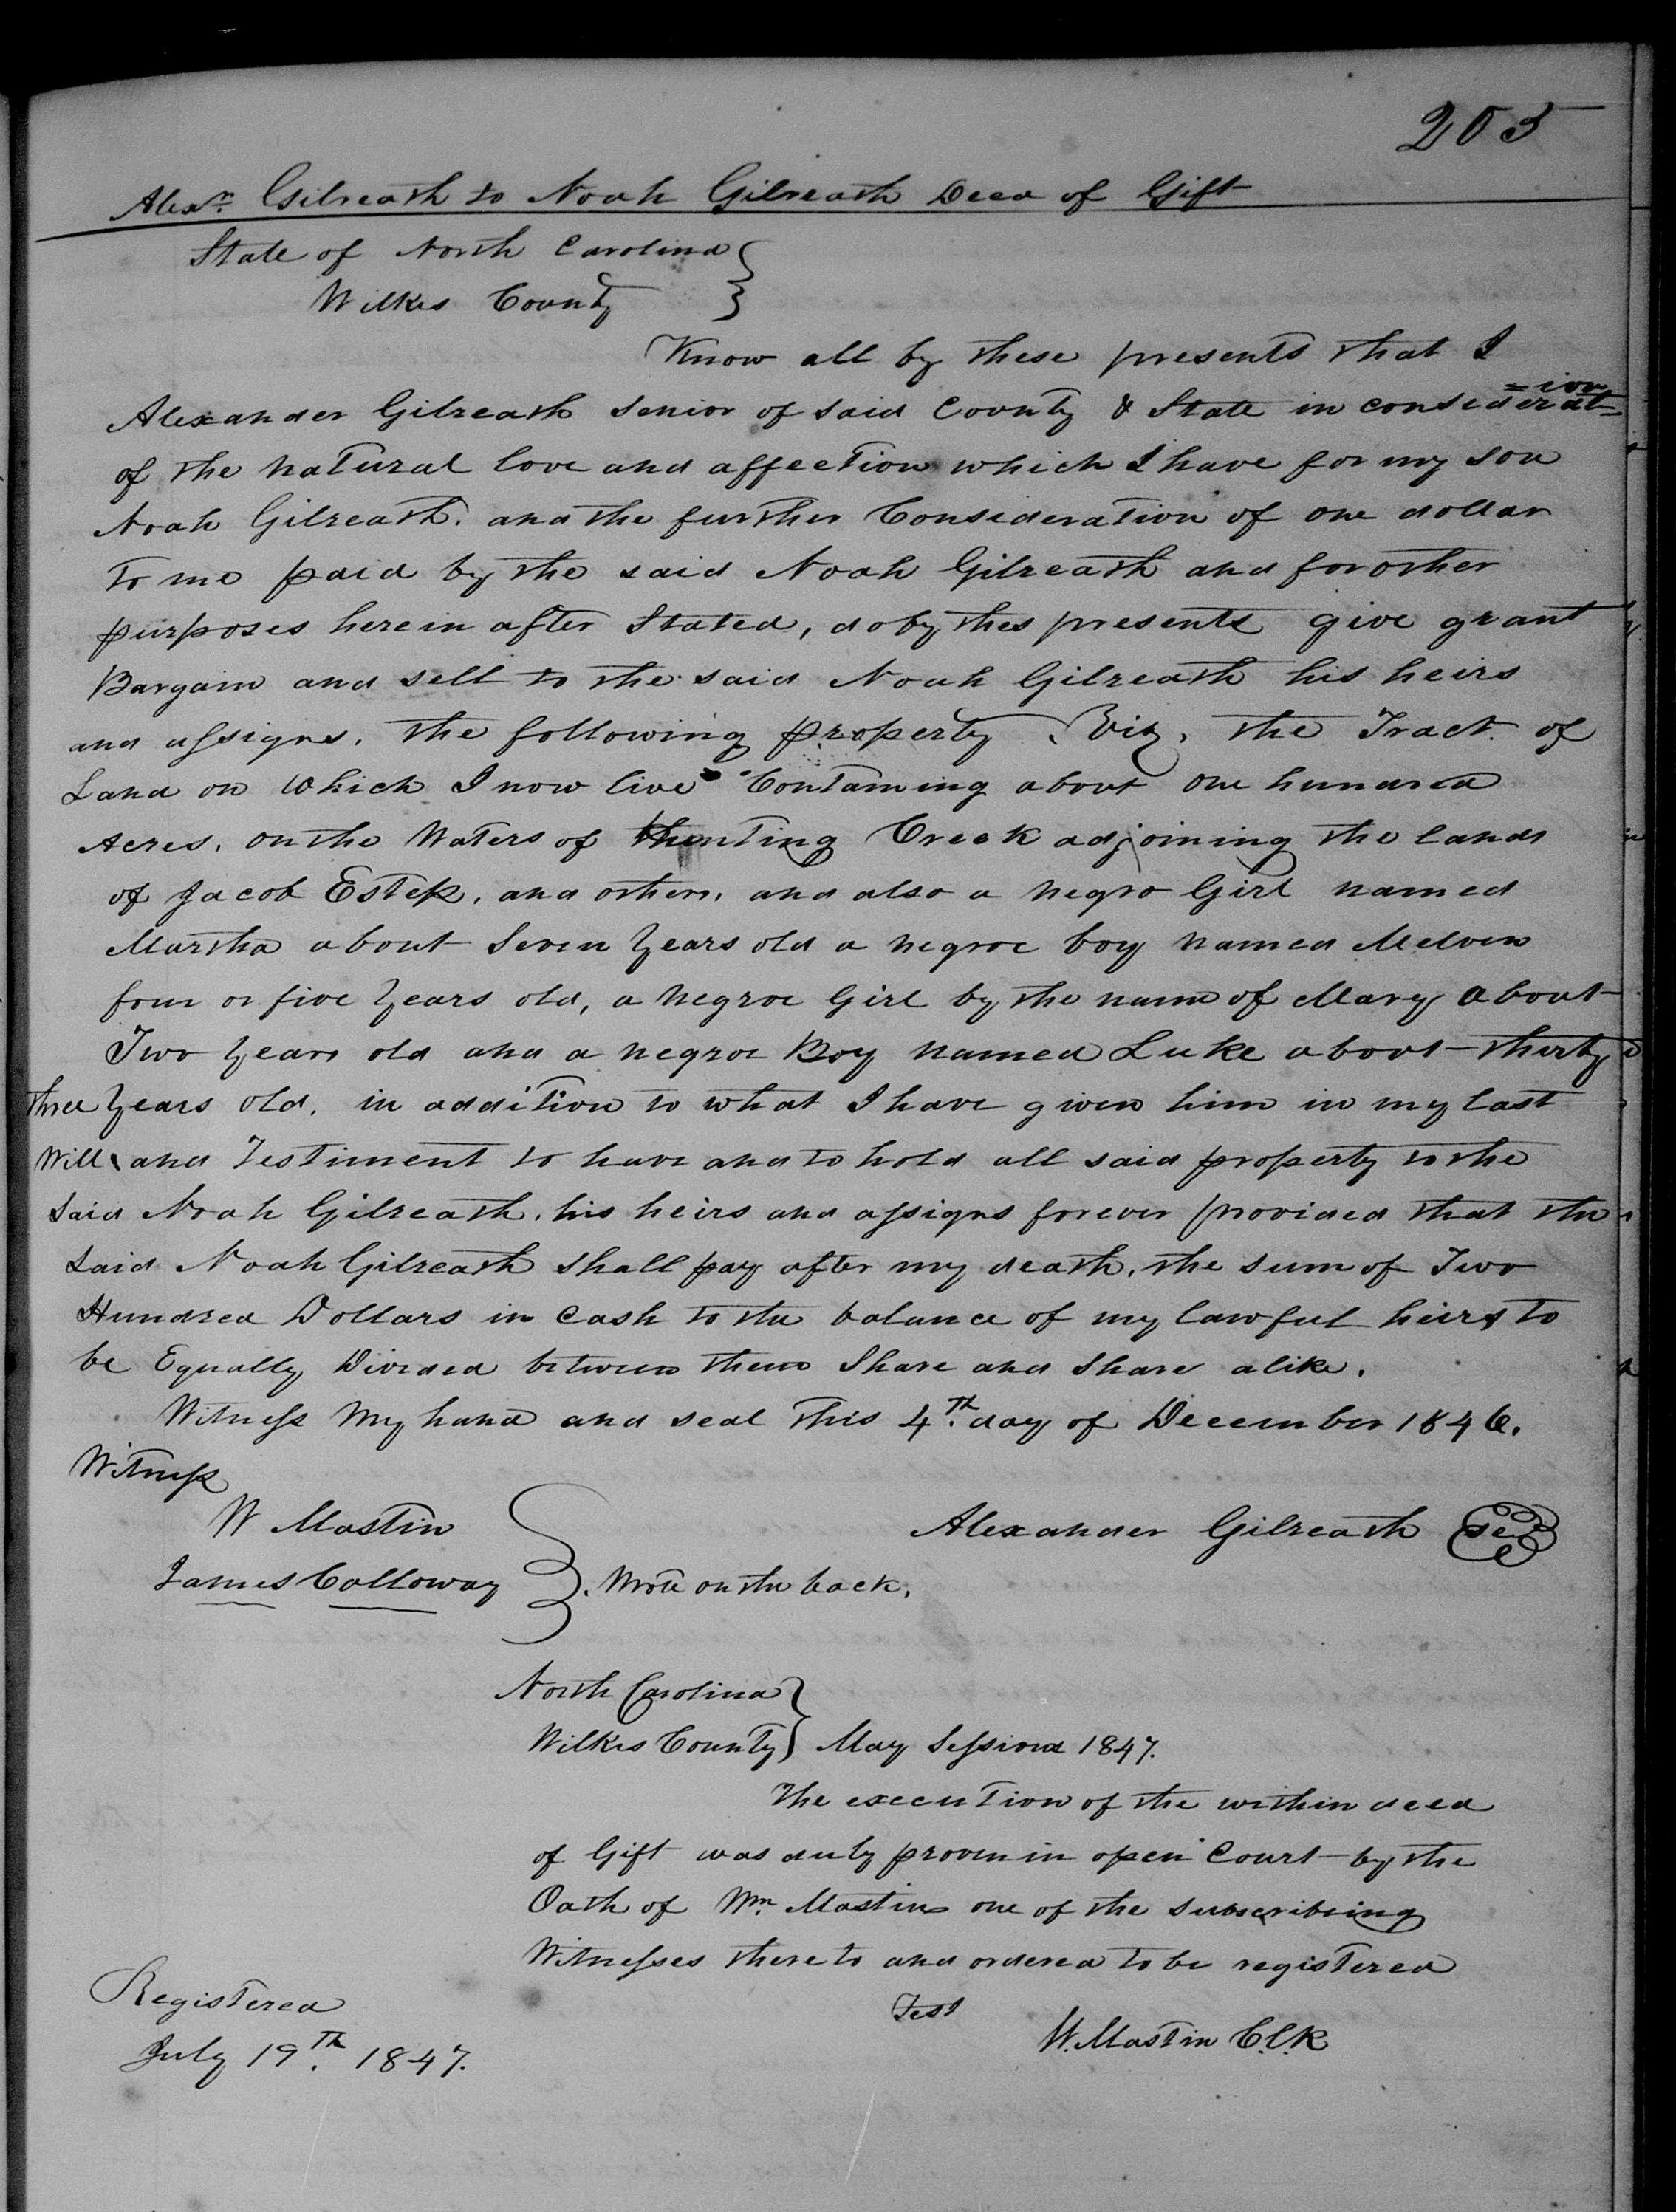 205
Alexr. Gilreath to Noah Gilreath Deed of Gift
State of North Carolina
Wilkes County
Know all by these presents that I
Alexander Gilreath Senior of said County & State in considerat=
=ion
of the natural love and affection which I have for my son
Noah Gilreath. and the further Consideration of one dollar
to me paid by the said Noah Gilreath and for other
purposes herein after Stated, do by thes presents give grant
Bargain and sell to the said Noah Gilreath his heirs
and assigns. the following property, Viz, the Tract of
Land on which I now live Containing about one hundred
Acres, on the Waters of Hunting Creek adjoining the lands
of Jacob Estep, and others, and also a negro Girl named
Martha about Seven Years old a negroe boy named Melven
four or five Years old, a negroe Girl by the name of Mary About
Two Years old and a negroe Boy named Luke about thirty
three Years old. in addition to what I have given him in my last
Will and Testiment to have and to hold all said property to the
said Noah Gilreath, his heirs and assigns forever provided that the
said Noah Gilreath shall pay after my death, the sum of Two
Hundred Dollars in Cash to the balance of my lawful heirs to
be Equally Divided between them Share and Share alike.
Witness My hand and seal this 4th. day of December 1846.
Witness
W Mastin
Alexander Gilreath seal
James Calloway
Wrote on the back,
North Carolina
Wilkes County May Session 1847.
The execution of the within deed
of Gift was duly proven in open Court by the
Oath of Wm. Mastin one of the subscribing
Witnesses thereto and ordered to be registered
Test
W. Mastin C.C.K
Registered
July 19th. 1847.